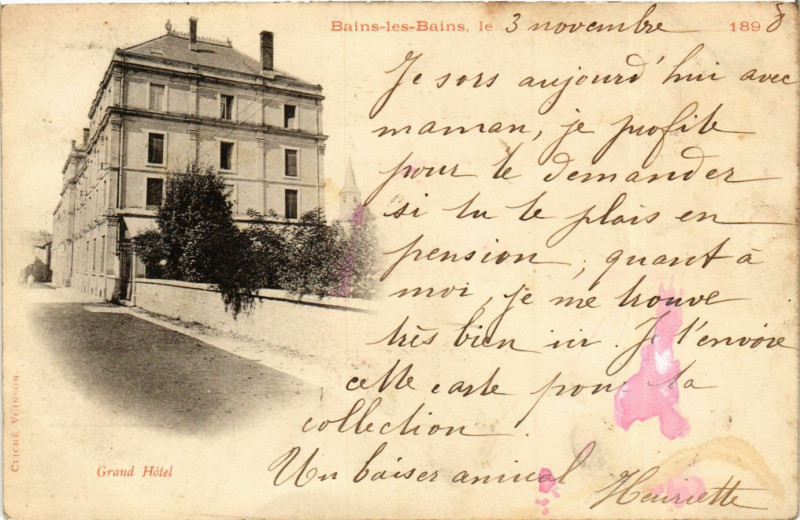 Bains-les-Bains, le 3 novembre 1898
Je sors aujourd'hui avec
maman, je profite
pour te demander
si tu te plais en
pension ; quant à
moi, je me trouve
très bien ici. Je t'envoie
cette carte pour ta
collection.
Un baiser amical
Henriette
Grand Hôtel
CLICHÉ VOIRNON.